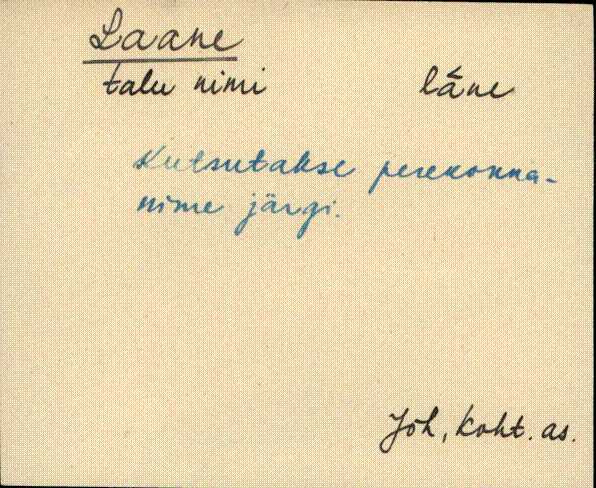 Laane
talu nimi   lǟne
Kutsutakse perekonna-
nime järgi.
Jõh, Koht. as.